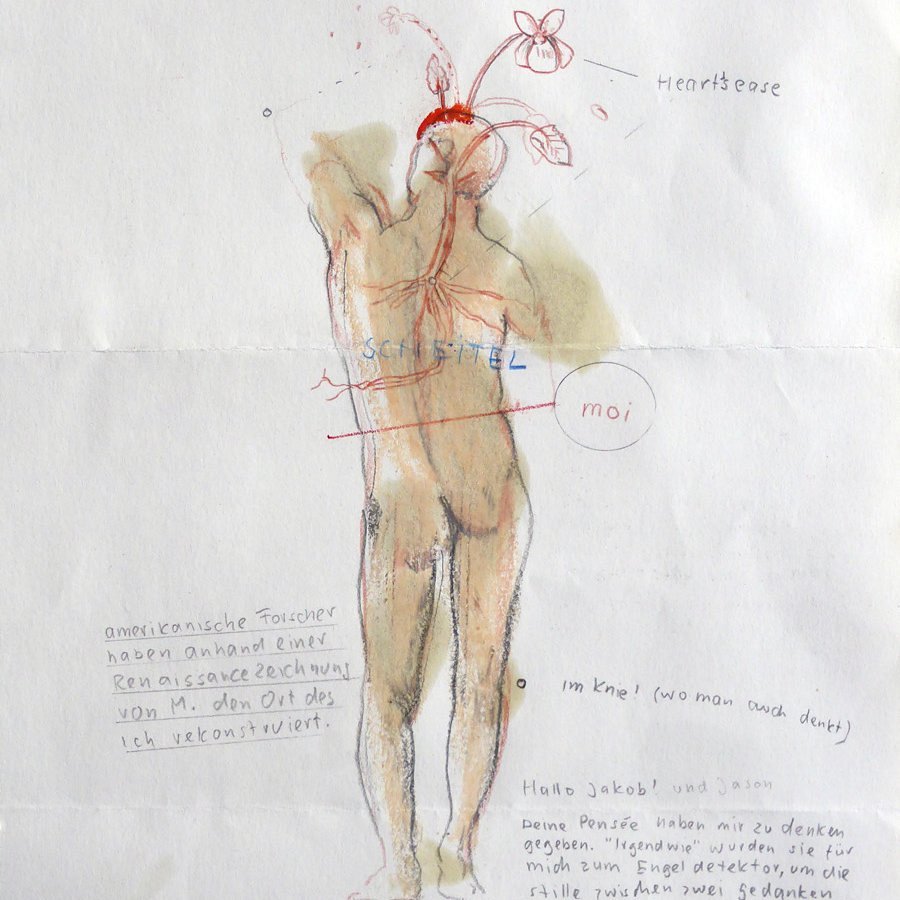 Heart'sease
SCHEITEL
moi
amerikanische Forscher
haben anhand einer
Renaissancezeichnung
von M. den Ort des
Ich rekonstruiert.
im Knie! (wo man auch denkt)
Hallo Jakob! und Jason
Deine Pensée haben mir zu denken
gegeben. "Irgendwie" wurden sie für
mich zum Engeldetektor, um die
stille zwischen zwei Gedanken